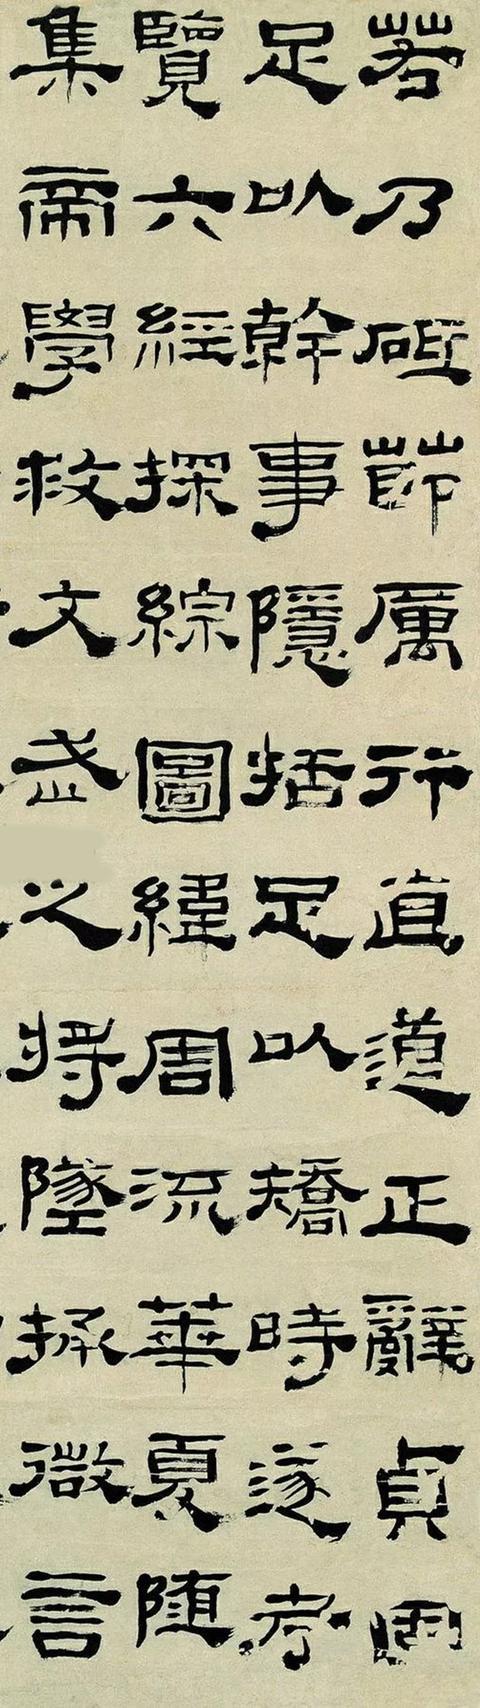 若乃砥節厲行直道正辭貞固
足以幹事隱括足以矯時遂考
覽六經探綜圖緯周流華夏随
集帝學救文武之將墜拯微言